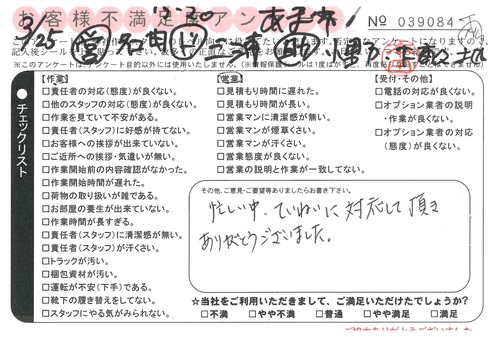 お客様不満足 アン
No 039084
記入後シール
※このアンケートは、アンケート目的以外には使用いたしません。
チェックリスト
【作業】
□責任者の対応(態度)が良くない。
□他のスタッフの対応(態度)が良くない。
□作業を見ていて不安がある。
□責任者(スタッフ)に好感が持てない。
□お客様への挨拶が出来ていない。
□ご近所への挨拶・気遣いが無い。
□作業開始前の内容確認がなかった。
□作業開始時間が遅れた。
□荷物の取り扱いが雑である。
□お部屋の養生が出来ていない。
□作業時間が長すぎる。
□責任者(スタッフ)に清潔感が無い。
□責任者(スタッフ)が汗くさい。
□トラックが汚い。
□梱包資材が汚い。
□運転が不安(下手)である。
□靴下の履き替えをしてない。
□スタッフにやる気がみられない。
【営業】
□見積もり時間に遅れた。
□見積もり時間が長い。
□営業マンに清潔感が無い。
□営業マンが煙草くさい。
□営業マンが汗くさい。
□営業態度が良くない。
□営業の説明と作業が一致してない。
【受付・その他】
□電話の対応が良くない。
□オプション業者の説明
・作業が良くない。
□オプション業者の対応
(態度)が良くない。
その他、ご意見・ご要望等ありましたらお書き下さい。
忙しい中、ていねいに対応して頂き
ありがとうございました。
☆当社をご利用いただきまして、ご満足いただけたでしょうか?
□不満 □やや不満 □普通 □やや満足 □満足
ご協力ありがとうございました